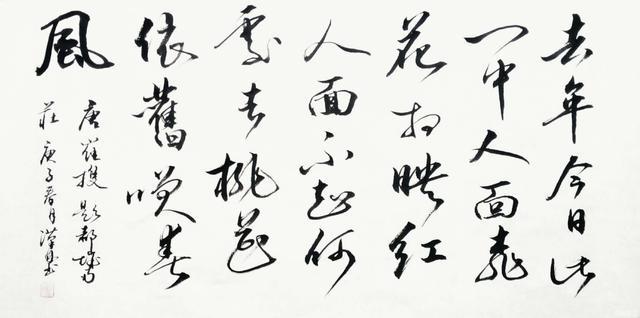 去年今日此
門中人面桃
花相映紅
人面不知何
處去桃花
依舊咲春
風
唐崔護題都城南
莊 庚子春月漢